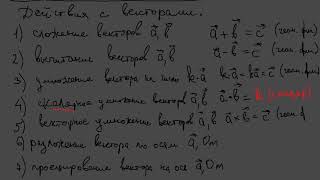 Действия с векторами.
1) сложение векторов a⃗, b⃗ a⃗ + b⃗ = c⃗ (геом. физ
2) вычитание векторов a⃗, b⃗ a⃗ - b⃗ = c⃗ (геом. физ
3) умножение вектора на число k·a⃗ k·a⃗ = c⃗ (геом. физ
4) скалярное умножение векторов a⃗, b⃗ a⃗·b⃗ = k (скаляр)
5) векторное умножение векторов a⃗, b⃗ a⃗ × b⃗ = c⃗ (геом. ф
6) разложение вектора по осям a⃗, Om
7) проецирование вектора на ось a⃗, Om